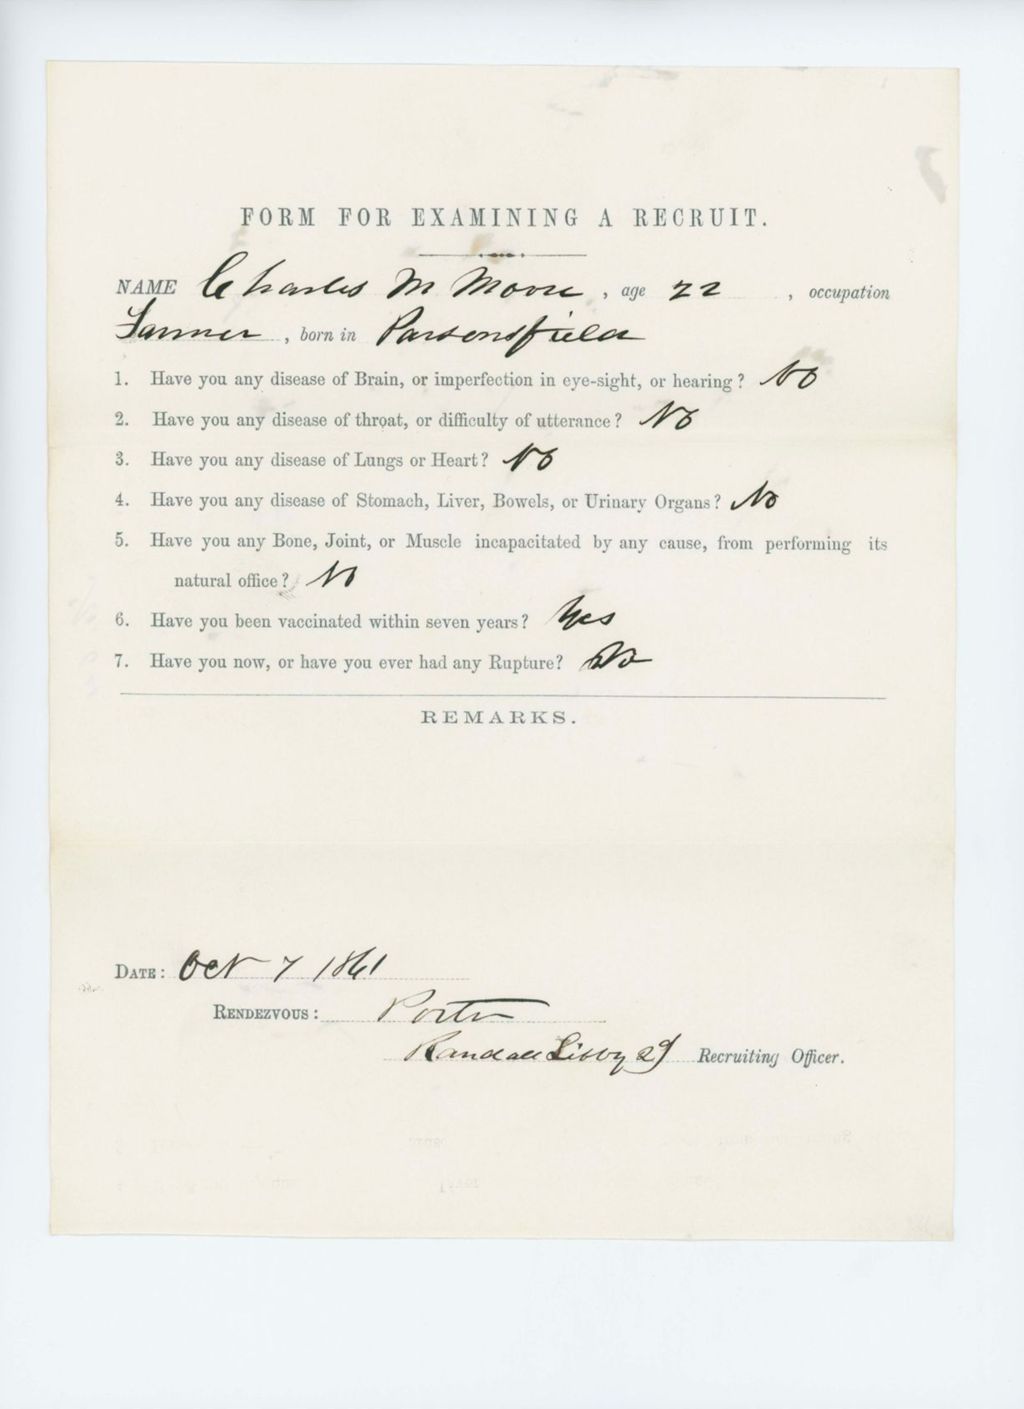 FORM FOR EXAMINING A RECRUIT.
NAME Charles M Moore, age 22, occupation
Farmer, born in Parsonsfield
1. Have you any disease of Brain, or imperfection in eye-sight, or hearing? No
2. Have you any disease of throat, or difficulty of utterance? No
3. Have you any disease of Lungs or Heart? No
4. Have you any disease of Stomach, Liver, Bowels, or Urinary Organs? No
5. Have you any Bone, Joint, or Muscle incapacitated by any cause, from performing its
natural office? No
6. Have you been vaccinated within seven years? Yes
7. Have you now, or have you ever had any Rupture? No
REMARKS.
DATE: Oct 7 1861
RENDEZVOUS: Porter
Randall Libby 2d Recruiting Officer.